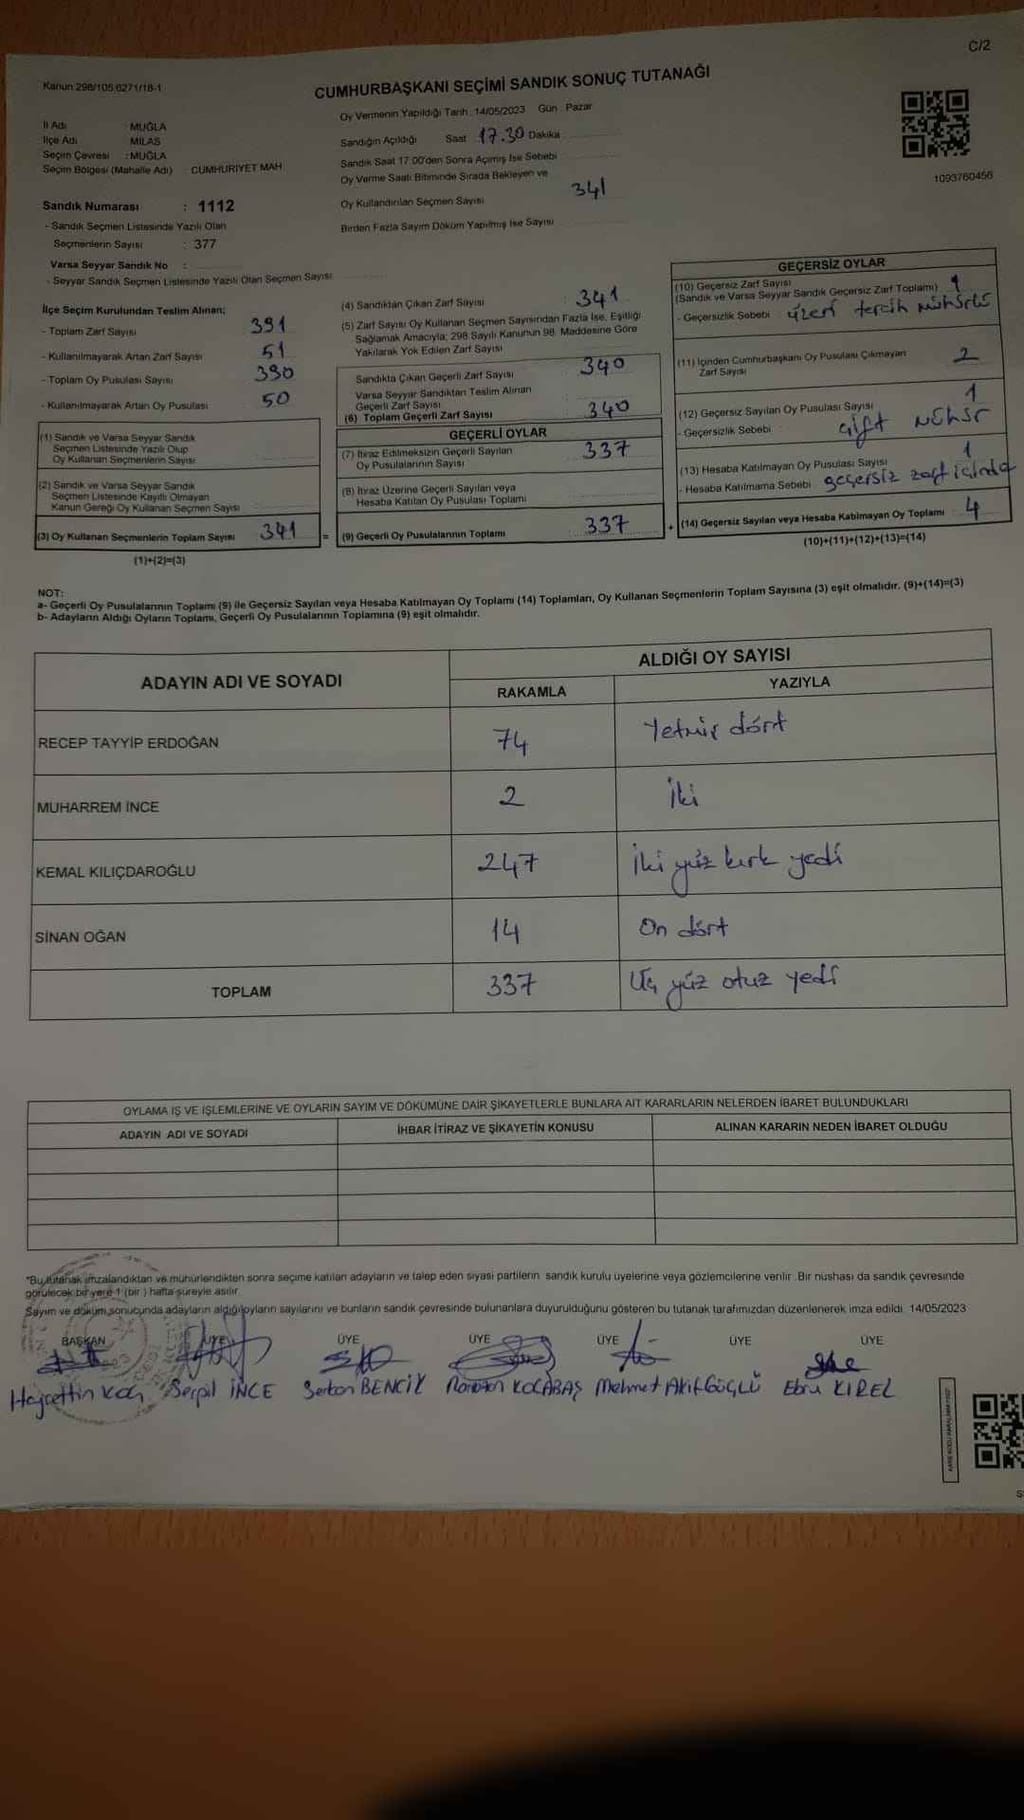 C/2
Kanun 298/105.6271/18-1
CUMHURBAŞKANI SEÇİMİ SANDIK SONUÇ TUTANAĞI
Oy Vermenin Yapıldığı Tarih : 14/05/2023 Gün : Pazar
İl Adı : MUĞLA
İlçe Adı : MİLAS
Seçim Çevresi : MUĞLA
Seçim Bölgesi (Mahalle Adı) : CUMHURİYET MAH
Sandığın Açıldığı Saat 17.30 Dakika
Sandık Saat 17:00'den Sonra Açılmış İse Sebebi
Oy Verme Saati Bitiminde Sırada Bekleyen ve
Oy Kullandırılan Seçmen Sayısı 341
Birden Fazla Sayım Döküm Yapılmış İse Sayısı
1093760456
Sandık Numarası : 1112
- Sandık Seçmen Listesinde Yazılı Olan
Seçmenlerin Sayısı : 377
Varsa Seyyar Sandık No :
- Seyyar Sandık Seçmen Listesinde Yazılı Olan Seçmen Sayısı
İlçe Seçim Kurulundan Teslim Alınan;
- Toplam Zarf Sayısı 391
- Kullanılmayarak Artan Zarf Sayısı 51
- Toplam Oy Pusulası Sayısı 390
- Kullanılmayarak Artan Oy Pusulası 50
(1) Sandık ve Varsa Seyyar Sandık
Seçmen Listesinde Yazılı Olup
Oy Kullanan Seçmenlerin Sayısı
(2) Sandık ve Varsa Seyyar Sandık
Seçmen Listesinde Kayıtlı Olmayan
Kanun Gereği Oy Kullanan Seçmen Sayısı
(3) Oy Kullanan Seçmenlerin Toplam Sayısı 341
(1)+(2)=(3)
(4) Sandıktan Çıkan Zarf Sayısı 341
(5) Zarf Sayısı Oy Kullanan Seçmen Sayısından Fazla İse, Eşitliği
Sağlamak Amacıyla; 298 Sayılı Kanunun 98. Maddesine Göre
Yakılarak Yok Edilen Zarf Sayısı
Sandıkta Çıkan Geçerli Zarf Sayısı 340
Varsa Seyyar Sandıktan Teslim Alınan
Geçerli Zarf Sayısı
(6) Toplam Geçerli Zarf Sayısı 340
GEÇERLİ OYLAR
(7) İtiraz Edilmeksizin Geçerli Sayılan
Oy Pusulalarının Sayısı 337
(8) İtiraz Üzerine Geçerli Sayılan veya
Hesaba Katılan Oy Pusulası Toplamı
= (9) Geçerli Oy Pusulalarının Toplamı 337
GEÇERSİZ OYLAR
(10) Geçersiz Zarf Sayısı
(Sandık ve Varsa Seyyar Sandık Geçersiz Zarf Toplamı) 1
- Geçersizlik Sebebi üzeri tercih mühürlü
(11) İçinden Cumhurbaşkanı Oy Pusulası Çıkmayan
Zarf Sayısı 2
(12) Geçersiz Sayılan Oy Pusulası Sayısı 1
- Geçersizlik Sebebi Çift Mühür
(13) Hesaba Katılmayan Oy Pusulası Sayısı 1
- Hesaba Katılmama Sebebi geçersiz zarf içinde
+ (14) Geçersiz Sayılan veya Hesaba Katılmayan Oy Toplamı 4
(10)+(11)+(12)+(13)=(14)
NOT:
a- Geçerli Oy Pusulalarının Toplamı (9) ile Geçersiz Sayılan veya Hesaba Katılmayan Oy Toplamı (14) Toplamları, Oy Kullanan Seçmenlerin Toplam Sayısına (3) eşit olmalıdır. (9)+(14)=(3)
b- Adayların Aldığı Oyların Toplamı, Geçerli Oy Pusulalarının Toplamına (9) eşit olmalıdır.
ADAYIN ADI VE SOYADI ALDIĞI OY SAYISI
RAKAMLA YAZIYLA
RECEP TAYYİP ERDOĞAN 74 Yetmiş dört
MUHARREM İNCE 2 İki
KEMAL KILIÇDAROĞLU 247 İki yüz kırk yedi
SİNAN OĞAN 14 On dört
TOPLAM 337 Üç yüz otuz yedi
OYLAMA İŞ VE İŞLEMLERİNE VE OYLARIN SAYIM VE DÖKÜMÜNE DAİR ŞİKAYETLERLE BUNLARA AİT KARARLARIN NELERDEN İBARET BULUNDUKLARI
ADAYIN ADI VE SOYADI İHBAR İTİRAZ VE ŞİKAYETİN KONUSU ALINAN KARARIN NEDEN İBARET OLDUĞU
*Bu tutanak imzalandıktan ve mühürlendikten sonra seçime katılan adayların ve talep eden siyasi partilerin sandık kurulu üyelerine veya gözlemcilerine verilir. Bir nüshası da sandık çevresinde
görülecek bir yere 1 (bir ) hafta süreyle asılır.
Sayım ve döküm sonucunda adayların aldığı oyların sayılarını ve bunların sandık çevresinde bulunanlara duyurulduğunu gösteren bu tutanak tarafımızdan düzenlenerek imza edildi. 14/05/2023
BAŞKAN ÜYE ÜYE ÜYE ÜYE ÜYE ÜYE
Hayrettin KOÇ Serpil İNCE Serkan BENCİK Ramazan KOCABAŞ Mehmet Akif GÜÇLÜ Ebru KIREL